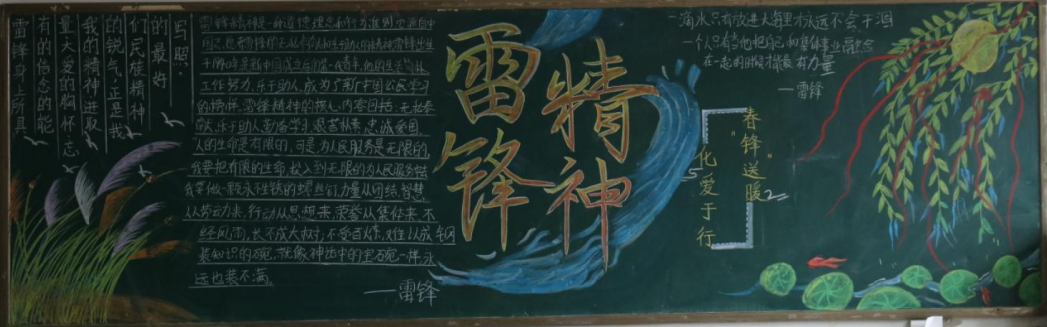 雷锋身上所具
有的信念的能
量大爱的胸怀志
我的精神进取
的锐气正是我
们民族精神
的最好
写照。
雷锋精神是一种道德理念和行为准则
于1940年
工作努力,乐于助人,成为了新中国公民学习
的榜样。雷锋精神的核心内容包括:无私奉
献、乐于助人、勤奋学习、艰苦朴素、忠诚爱国。
人的生命是有限的,可是为人民服务是无限的,
我要把有限的生命,投入到无限的为人民服务
我要做一颗永不生锈的螺丝钉力量从团结,智慧
从劳动来,行动从思想来荣誉从集体来不
经风雨,长不成大树;不受百炼,难以成钢
装知识的碗,就像神话中的宝石碗一样永
远也装不满。
一雷锋
雷锋
精神
春锋送暖
化爱于行
一滴水只有放进大海里才永远不会干涸
一个人只有当他把自己和集体事业融合
在一起的时候才能最有力量
一雷锋